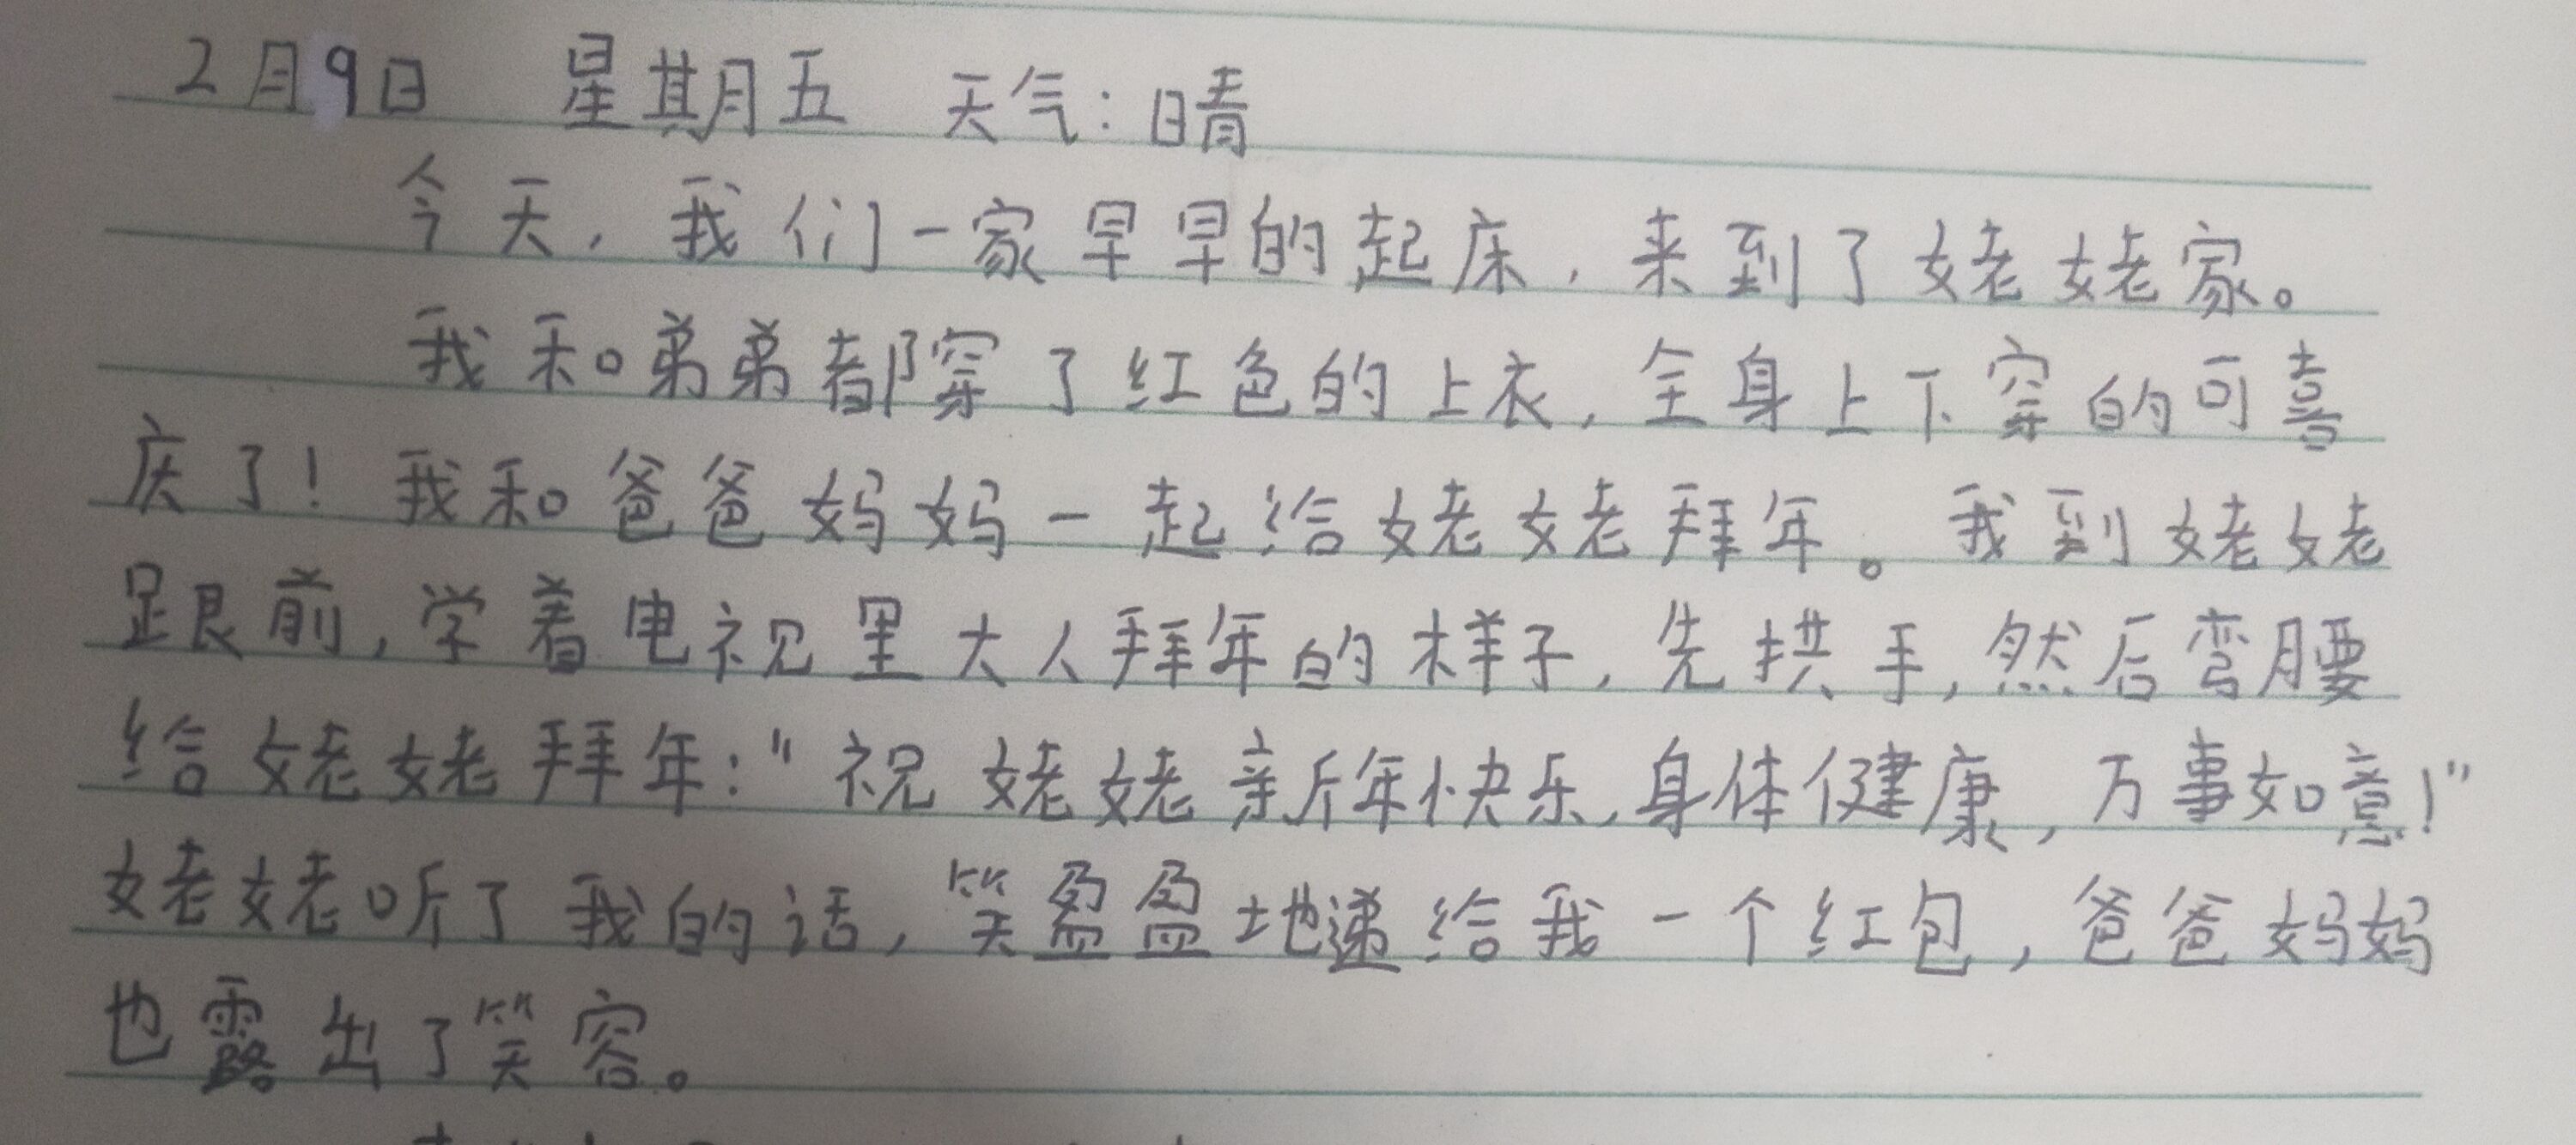 2月9日 星期五 天气:晴
今天,我们一家早早的起床,来到了姥姥家。
我和弟弟都穿了红色的上衣,全身上下穿的可喜
庆了!我和爸爸妈妈一起给姥姥拜年。我到姥姥
跟前,学着电视里大人拜年的样子,先拱手,然后弯腰
给姥姥拜年:"祝姥姥新年快乐,身体健康,万事如意!"
姥姥听了我的话,笑盈盈地递给我一个红包,爸爸妈妈
也露出了笑容。